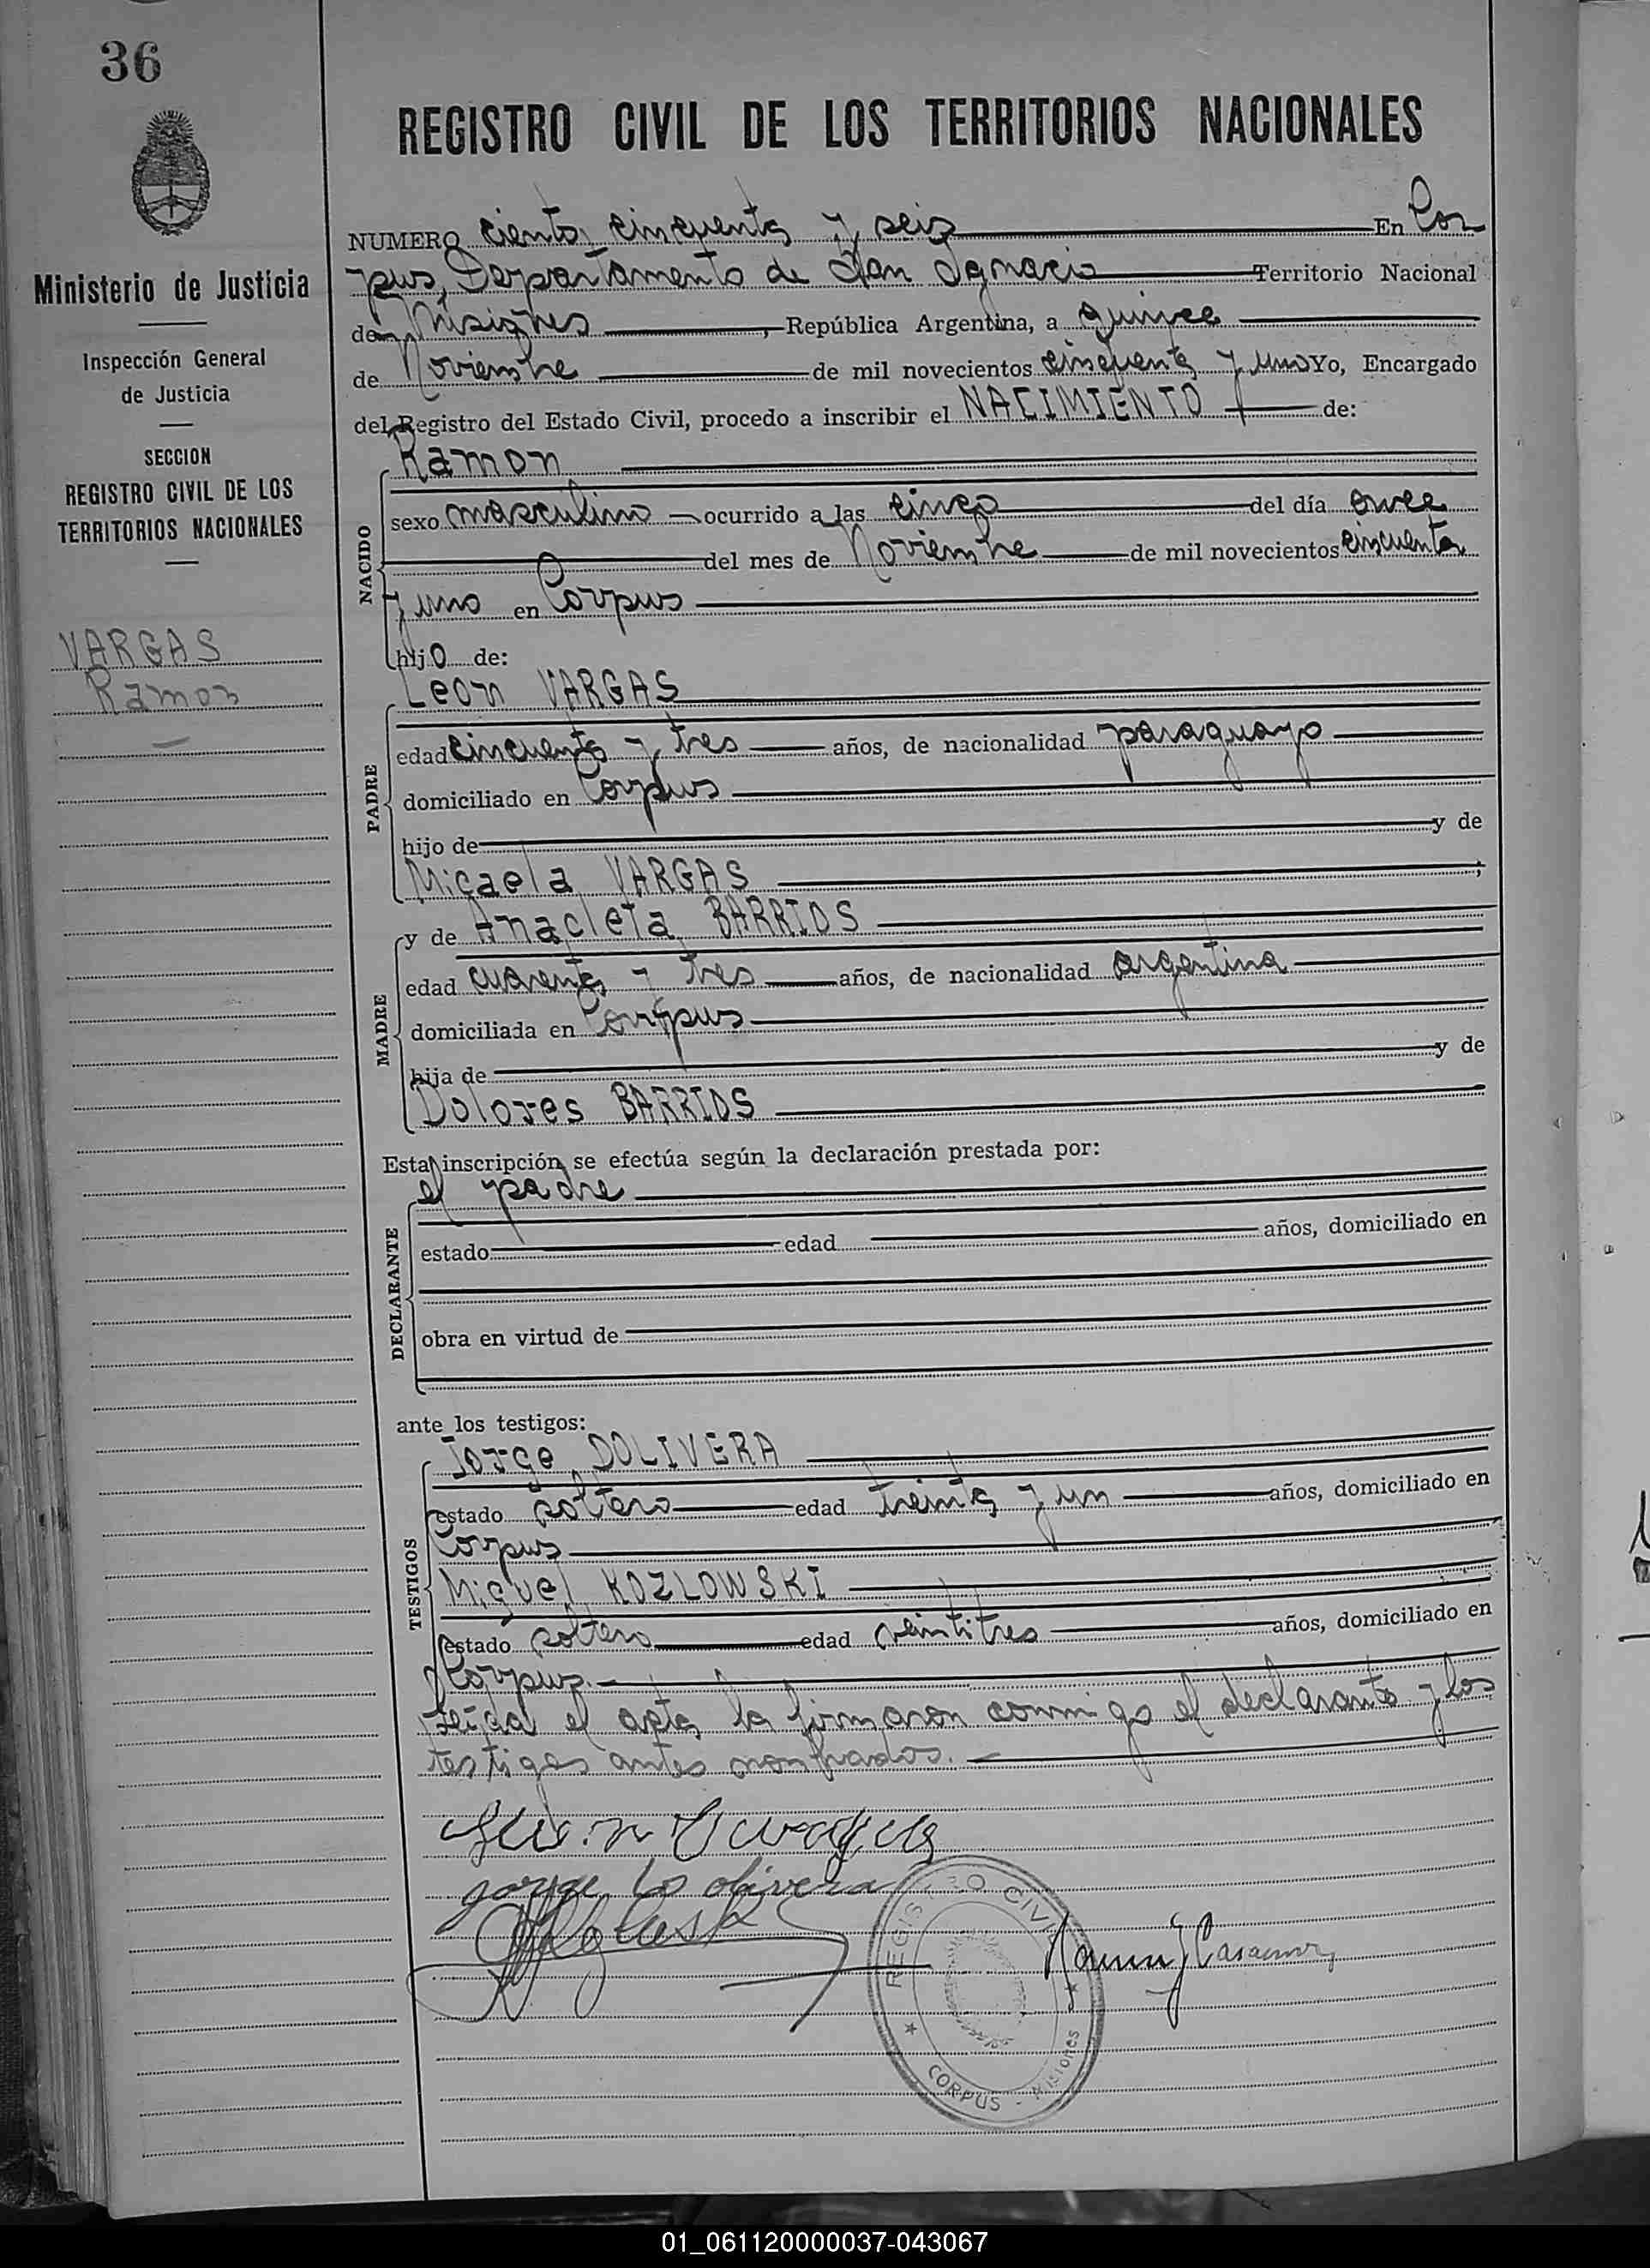 36
Ministerio de Justicia
Inspección General
de Justicia
SECCION
REGISTRO CIVIL DE LOS
TERRITORIOS NACIONALES
VARGAS
Ramon
REGISTRO CIVIL DE LOS TERRITORIOS NACIONALES
NUMERO ciento cincuenta y seis En Cor
pus, Departamento de San Ignacio Territorio Nacional
de Misiones, República Argentina, a quince
de Noviembre de mil novecientos cincuenta y uno Yo, Encargado
del Registro del Estado Civil, procedo a inscribir el NACIMIENTO de:
NACIDO
Ramon
sexo masculino ocurrido a las cinco del día once
del mes de Noviembre de mil novecientos cincuenta
y uno en Corpus
hijo de:
PADRE
Leon VARGAS
edad cincuenta y tres años, de nacionalidad paraguayo
domiciliado en Corpus
hijo de y de
Micaela VARGAS ;
MADRE
y de Anacleta BARRIOS
edad cuarenta y tres años, de nacionalidad argentina
domiciliada en Corpus
hija de y de
Dolores BARRIOS
Esta inscripción se efectúa según la declaración prestada por:
DECLARANTE
el padre
estado edad años, domiciliado en
obra en virtud de
ante los testigos:
TESTIGOS
Jorge DOLIVERA
estado soltero edad treinta y un años, domiciliado en
Corpus
Miguel KOZLOWSKI
estado soltero edad veintitres años, domiciliado en
Corpus.
Leida el acta la firmaron conmigo el declarante y los
testigos antes nombrados.
REGISTRO CIVIL
CORPUS - Misiones
01_061120000037-043067